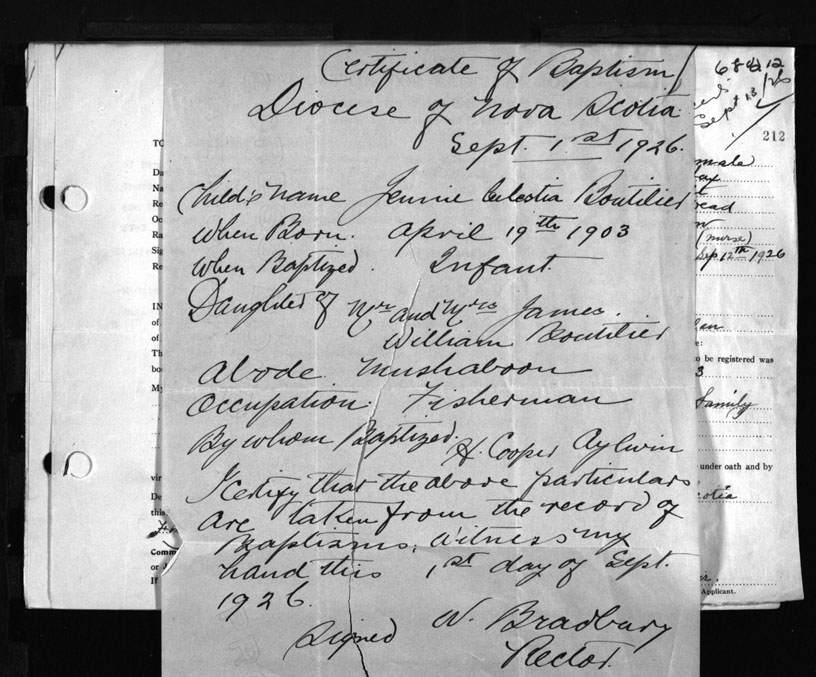 Certificate of Baptism
Diocese of Nova Scotia
Sept. 1st 1926.
Child's name Jennie Celestia Boutilier
When Born. April 19th 1903
When Baptized. Infant.
Daughter of Mr and Mrs James.
William Boutilier
Abode Mushaboon
Occupation. Fisherman
By whom Baptized.
H. Cooper Aylwin
I certify that the above particulars
are taken from the record of
Baptisms, Witness my
hand this 1st day of Sept.
1926.
Signed W. Bradbury
Rector.
Sept 13
212
(nurse)
Sep 12th 1926
to be registered was
3
family
under oath and by
Applicant.
TO
Da
Na
Re
Oc
Ra
Sig
Re
IN
of
of
Th
bo
My
vir
De
this
Comm
or J
If